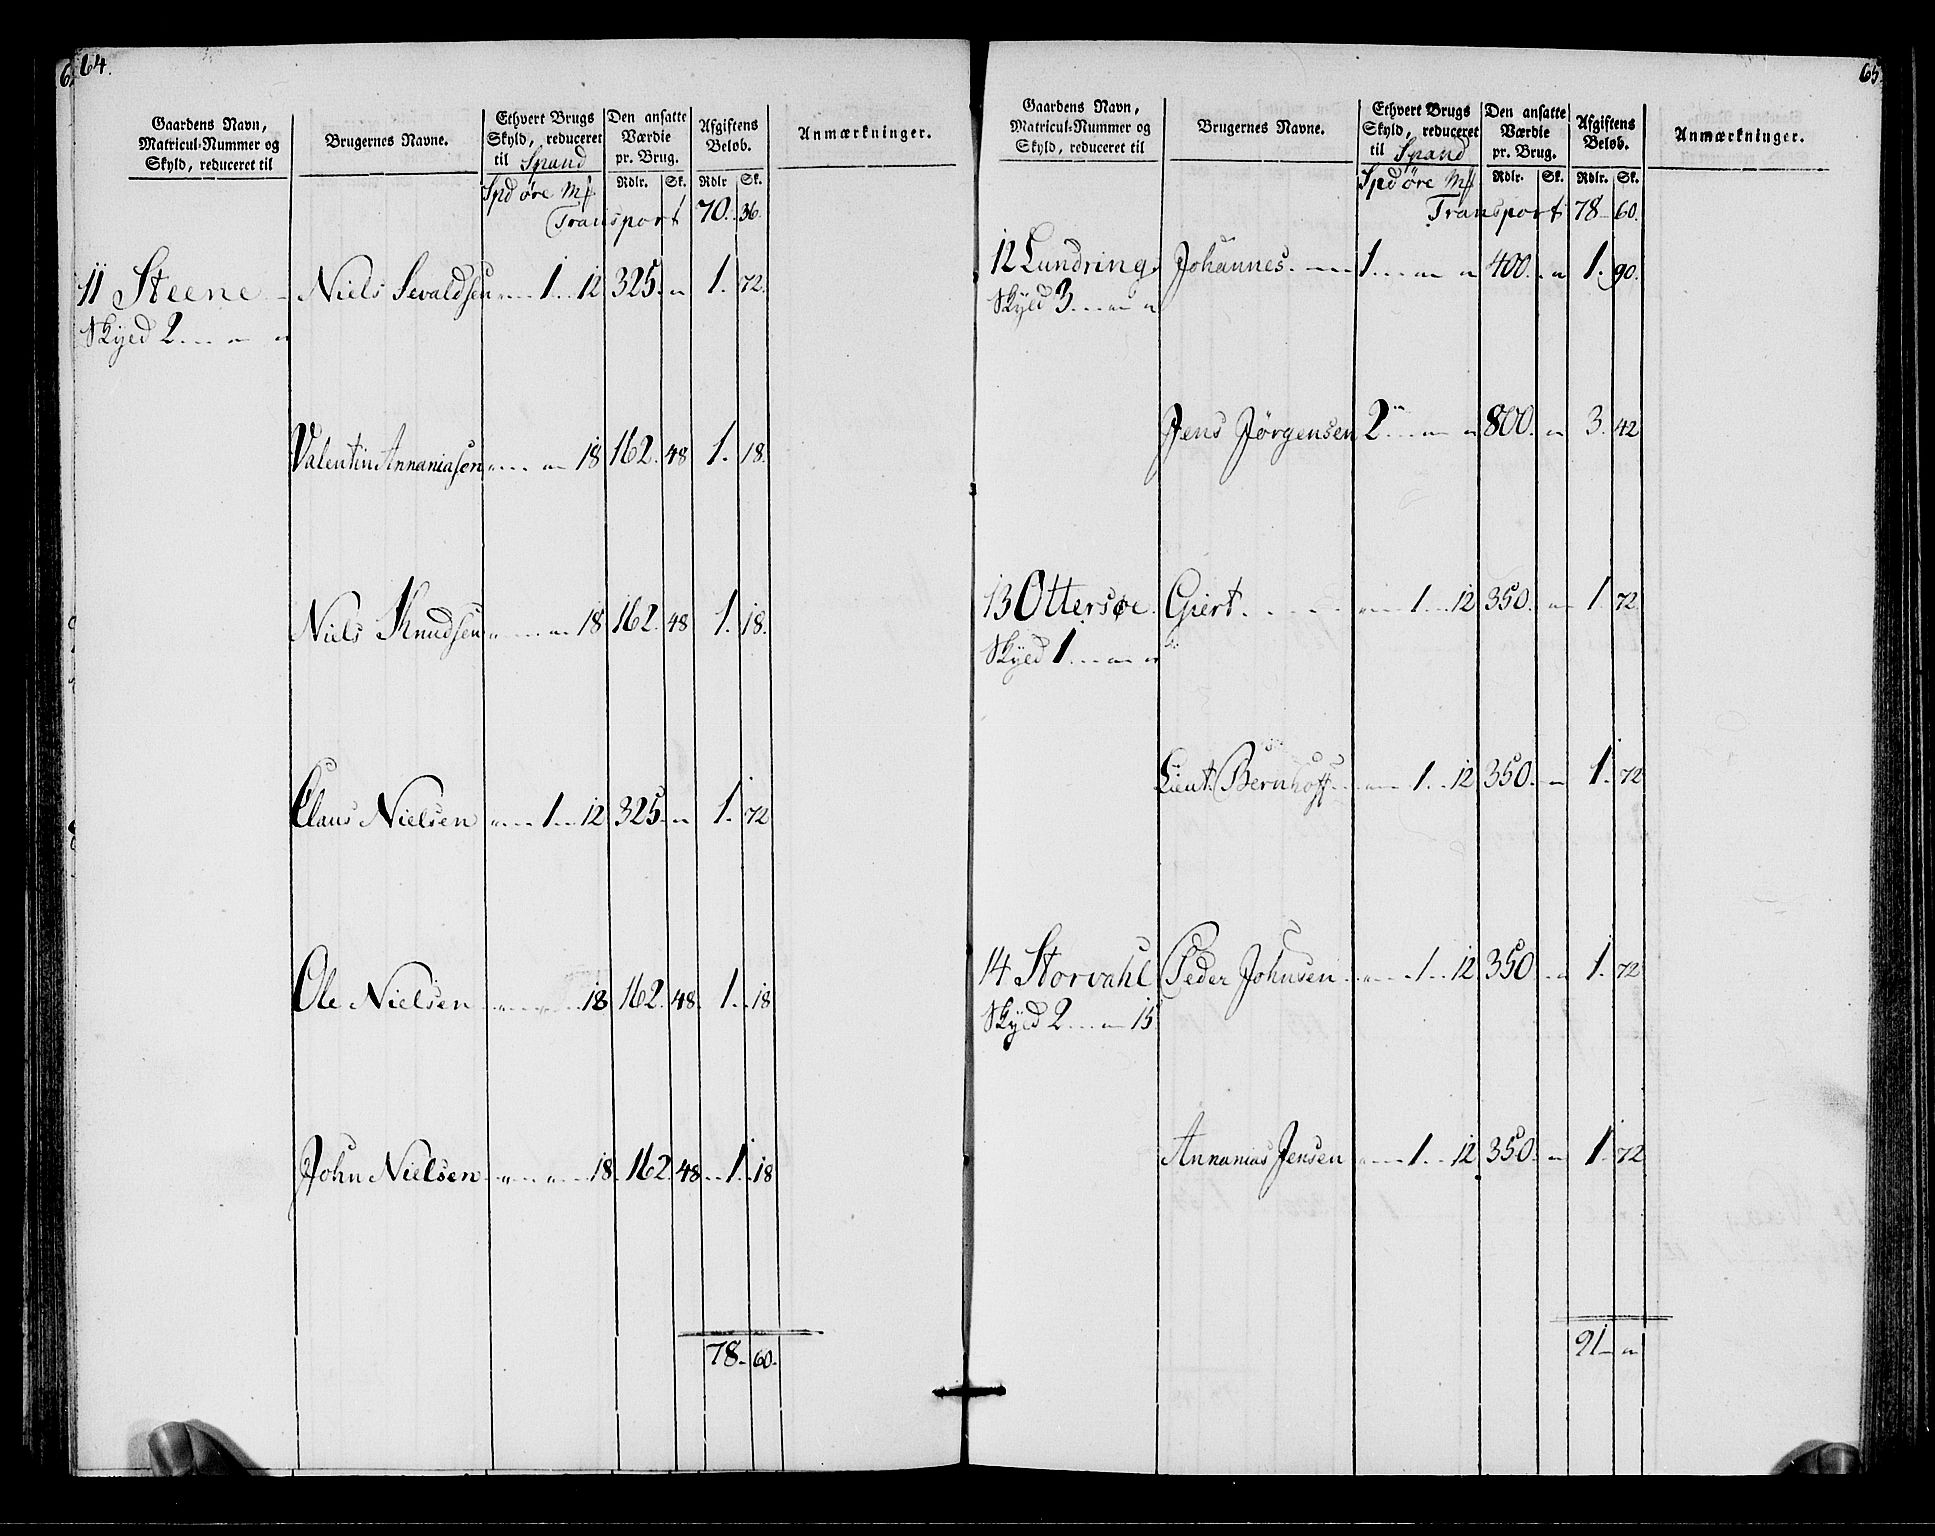 64.
Gaardens Navn, Matricul-Nummer og Skyld, reduceret til
Brugernes Navne.
Ethvert Brugs Skyld, reduceret til Spand
Den ansatte Værdie pr. Brug.
Afgiftens Beløb.
Anmærkninger.
Spd øre Mk Rdlr. Sk. Rdlr Sk.
Transport 70. 36.
11 Steene Niels Sevaldsen 1. 12 325. 1. 72.
Skyld 2
Valentin Annaniasen 18 162. 48 1. 18.
Niels Knudsen 18 162. 48 1. 18.
Claus Nielsen 1. 12 325. 1. 72
Ole Nielsen 18 162. 48. 1. 18
John Nielsen 18. 162. 48. 1. 18
78. 60.
65.
Gaardens Navn, Matricul-Nummer og Skyld, reduceret til
Brugernes Navne.
Ethvert Brugs Skyld, reduceret til Spand
Den ansatte Værdie pr. Brug.
Afgiftens Beløb.
Anmærkninger.
Spd øre Mk Rdlr. Sk. Rdlr. Sk.
Transport 78 60.
12 Lundring Johannes. 1. 400. 1. 90.
Skyld 3
Jens Jørgensen 2 800. 3. 42
13 Ottersøe Giert. 1. 12 350. 1. 72.
Skyld 1
Lieut. Bernhoff 1. 12 350. 1. 72
14 Storvahl Peder Johnsen 1. 12 350 1. 72
Skyld 2 15
Annanias Jensen 1. 12 350. 1. 72
91